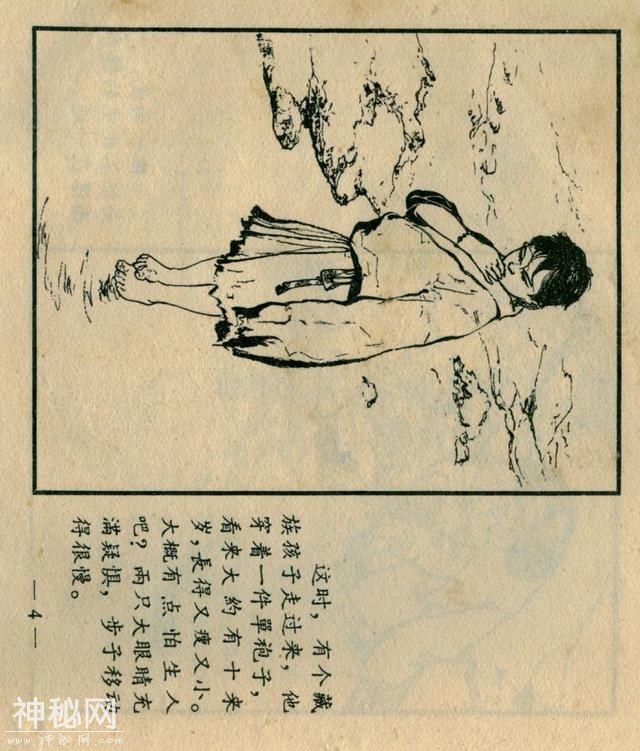 这时，有个藏
族孩子走过来，他
穿着一件單袍子，
看来大約有十来
岁，長得又瘦又小。
大概有点怕生人
吧？两只大眼睛充
满疑惧，步子移动
得很慢。
—4—
神秘网
www.shenmiw.com